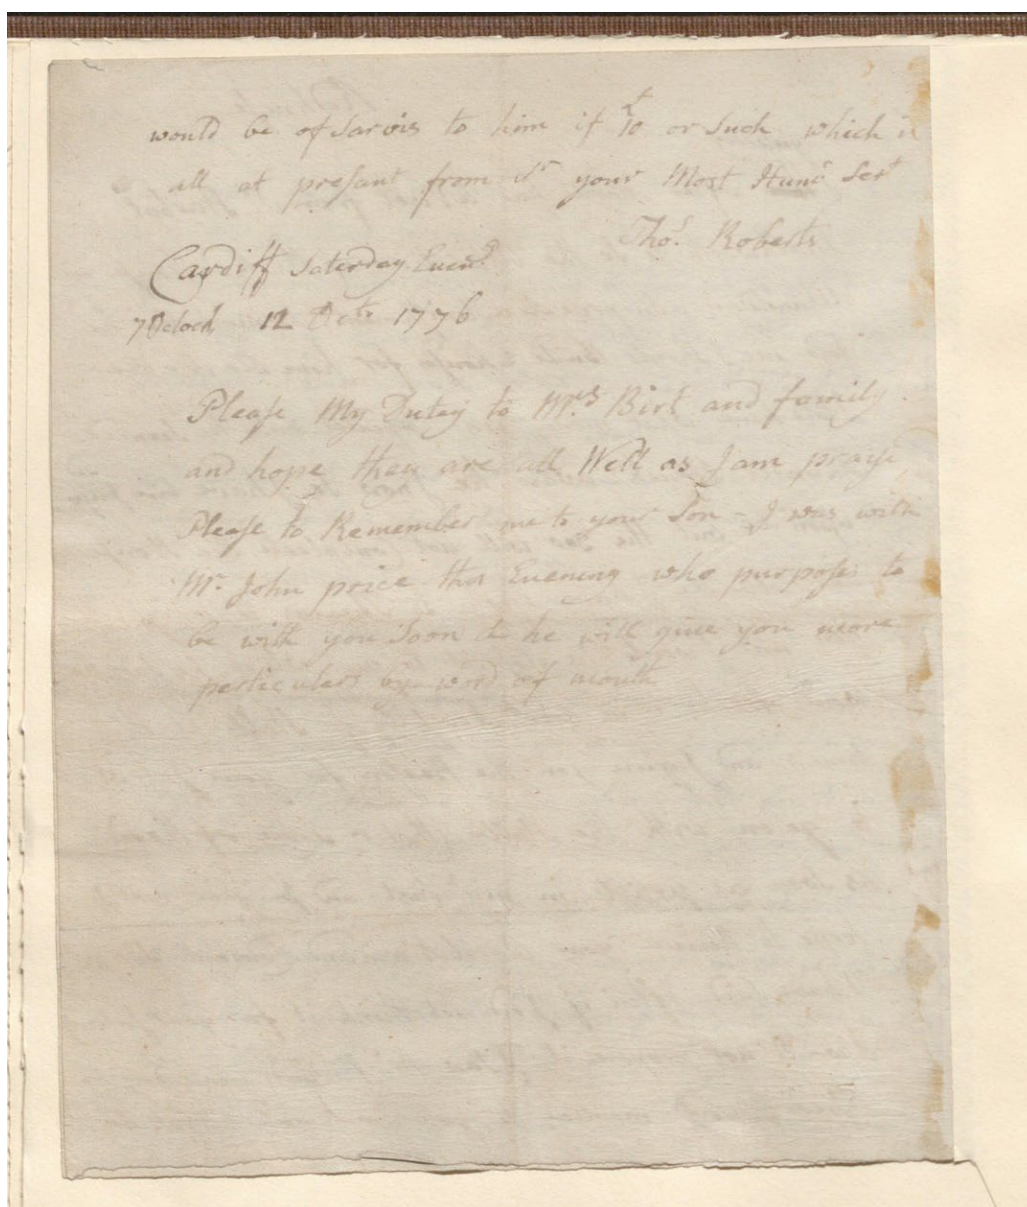 would be of Sarvis to him if 10 or Such which is
all at presant from Sr your Most Humᵉ Serᵗ
Thoˢ Roberts
Cardiff Saterday Evenᵍ
7 Oclock 12 Octr 1776
Please My Dutey to Mrs Birt and family
and hope they are all Well as I am praise
Please to Remember me to your Son - I was with
Mr John price this Evening who purposes to
be with you Soon & he will give you more
perticulars by word of mouth